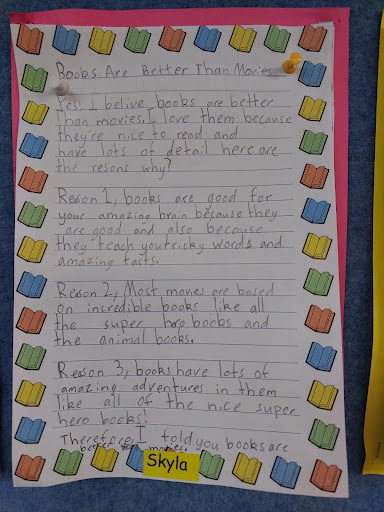 Books Are Better Than Movies
Yes! I belive books are better
than movies. I love them because
they're nice to read and
have lots of detail here are
the resons why?
Reason 1, books are good for
your amazing brain because they
are good and also because
they teach you tricky words and
amazing facts.
Reason 2, Most movies are based
on incredible books like all
the super hero books and
the animal books.
Reason 3, books have lots of
amazing adventures in them
like all of the nice super
hero books!
Therefore, I told you books are
better than movies.
Skyla